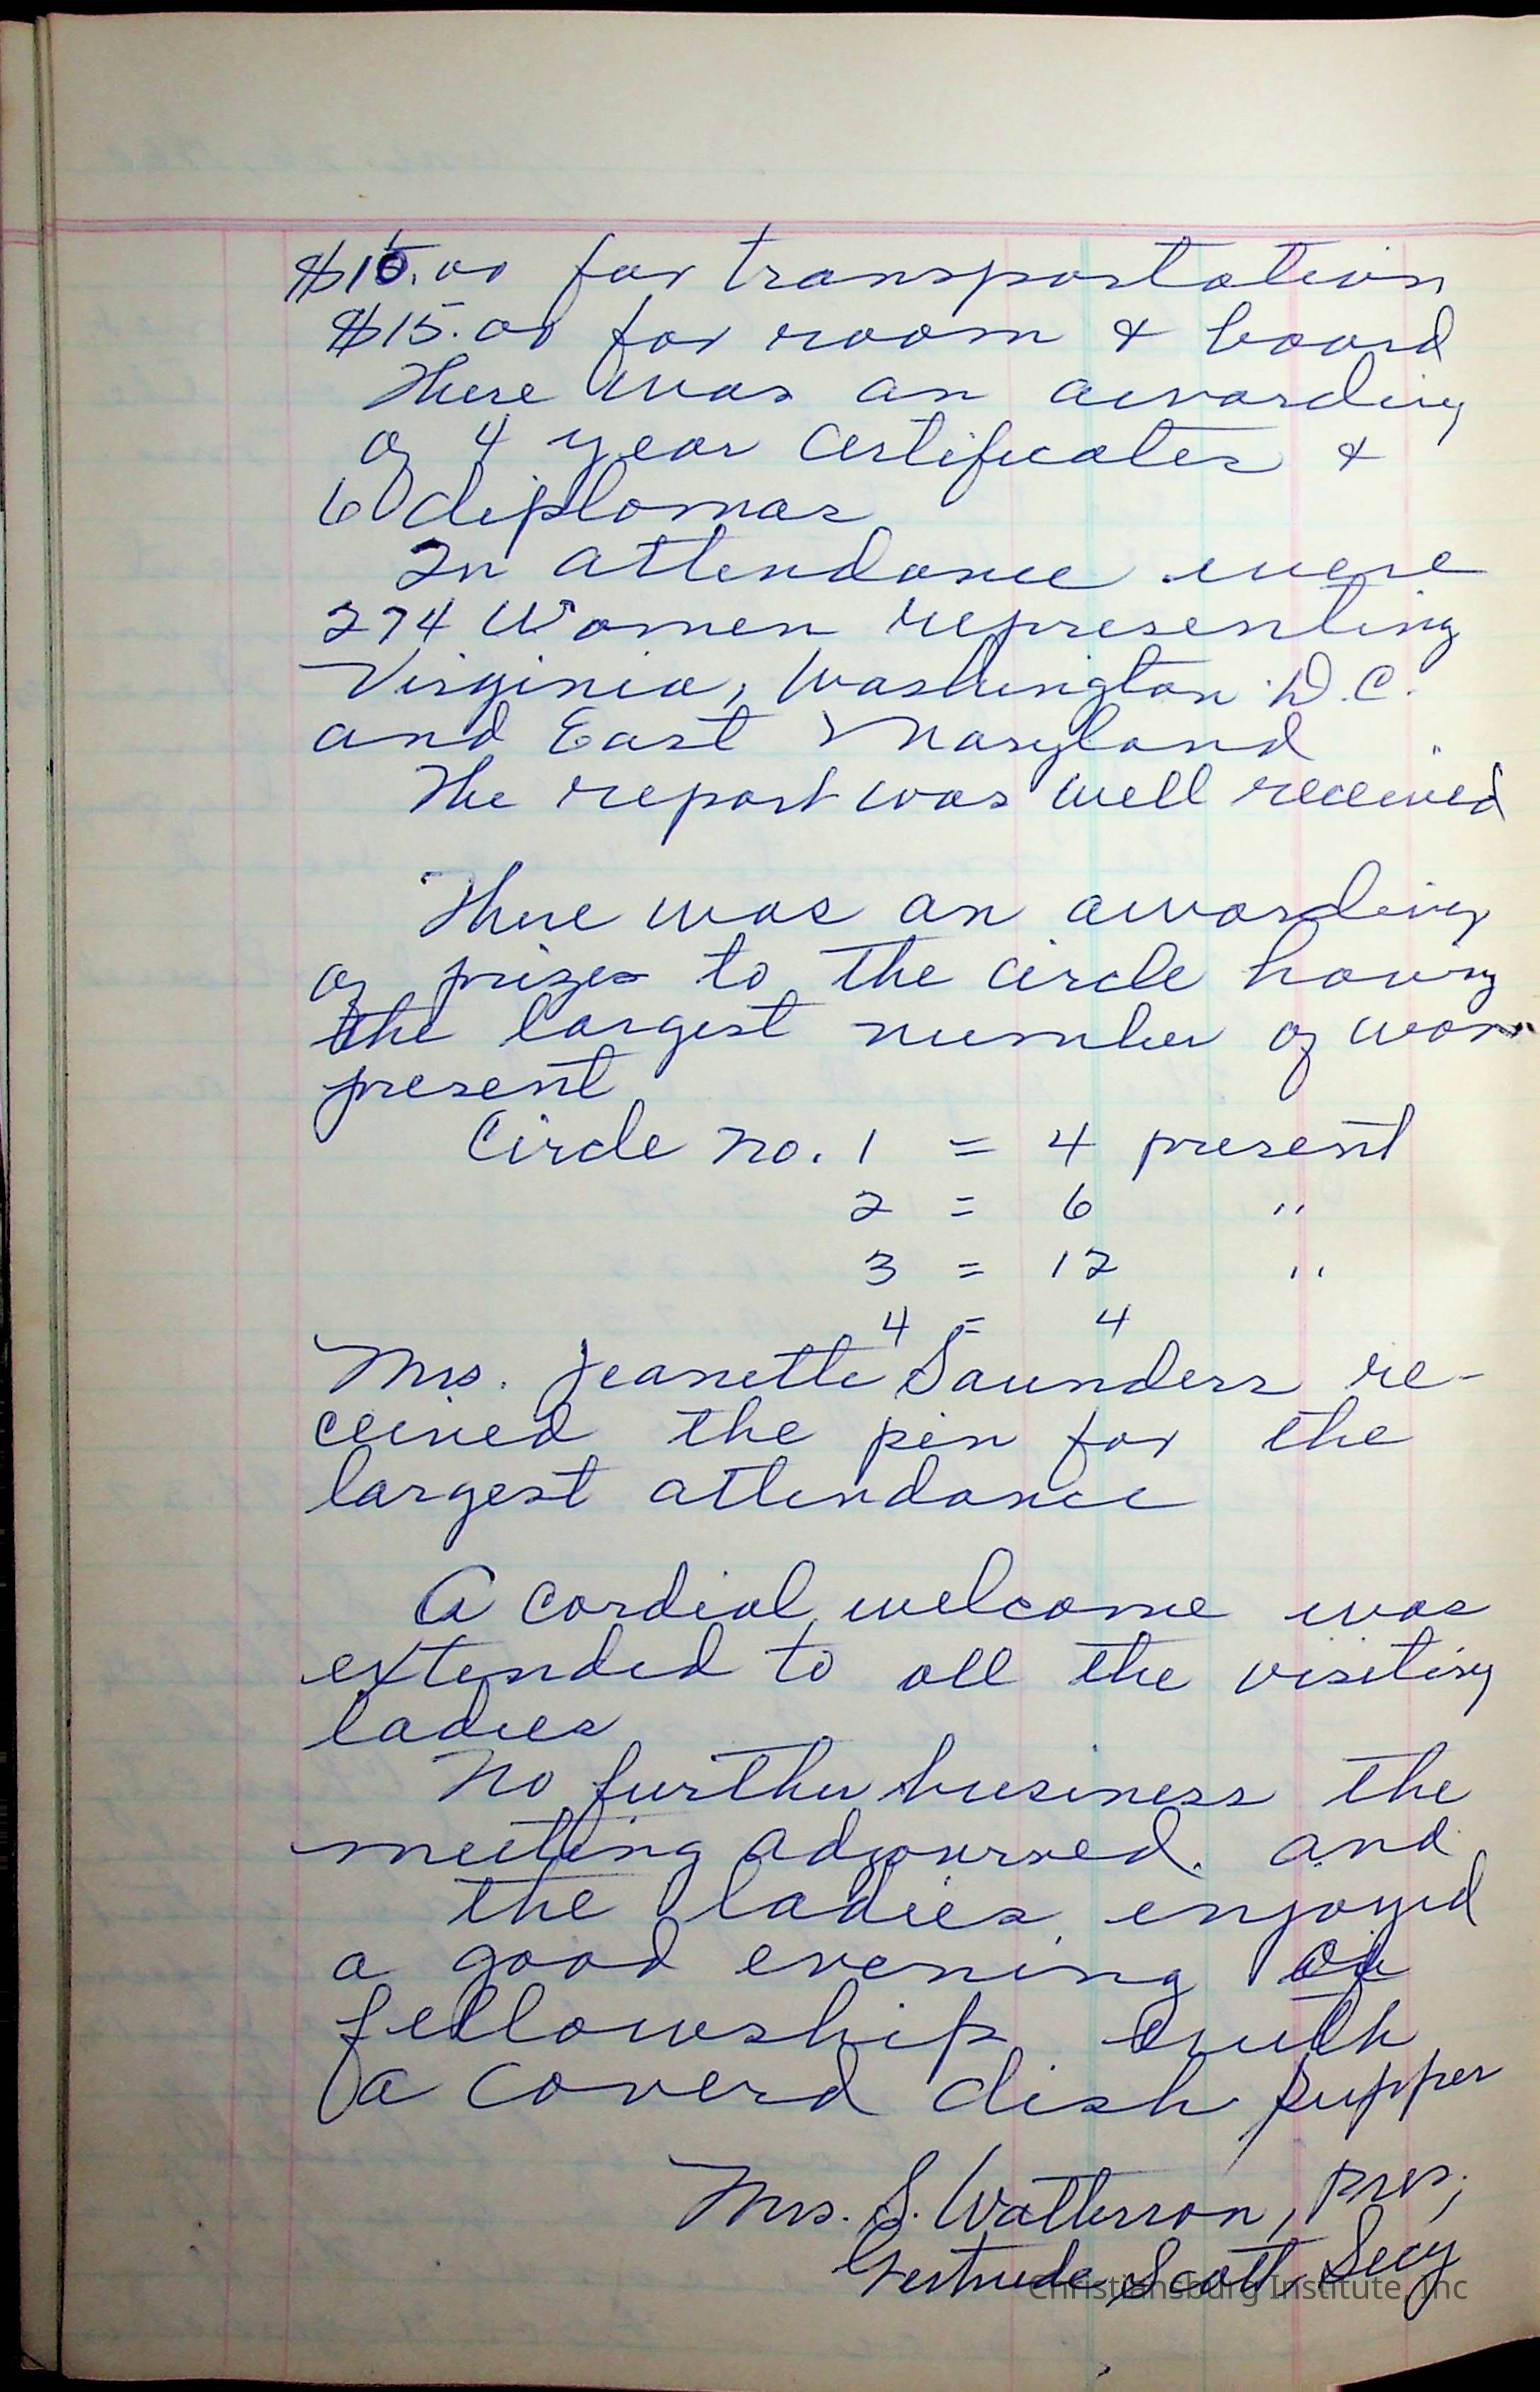 $15.00 for transportation
$15.00 for room & board
There was an awarding
of 4 year Certificates &
6 diplomas
In attendance were
274 Women representing
Virginia, Washington D.C.
and East Maryland
The report was well received
There was an awarding
of prizes to the circle having
the largest number of
present
Circle no. 1 = 4 present
2 = 6 "
3 = 12 "
4 = 4
Mrs. Jeanette Saunders re-
ceived the pin for the
largest attendance
A cordial welcome was
extended to all the visiting
ladies
No further business the
meeting adjourned. and
the ladies enjoyed
a good evening of
fellowship with
a coverd dish supper
Mrs. S. Watterson, Pres;
Gertrude Scott, Secy
Christiansburg Institute, Inc